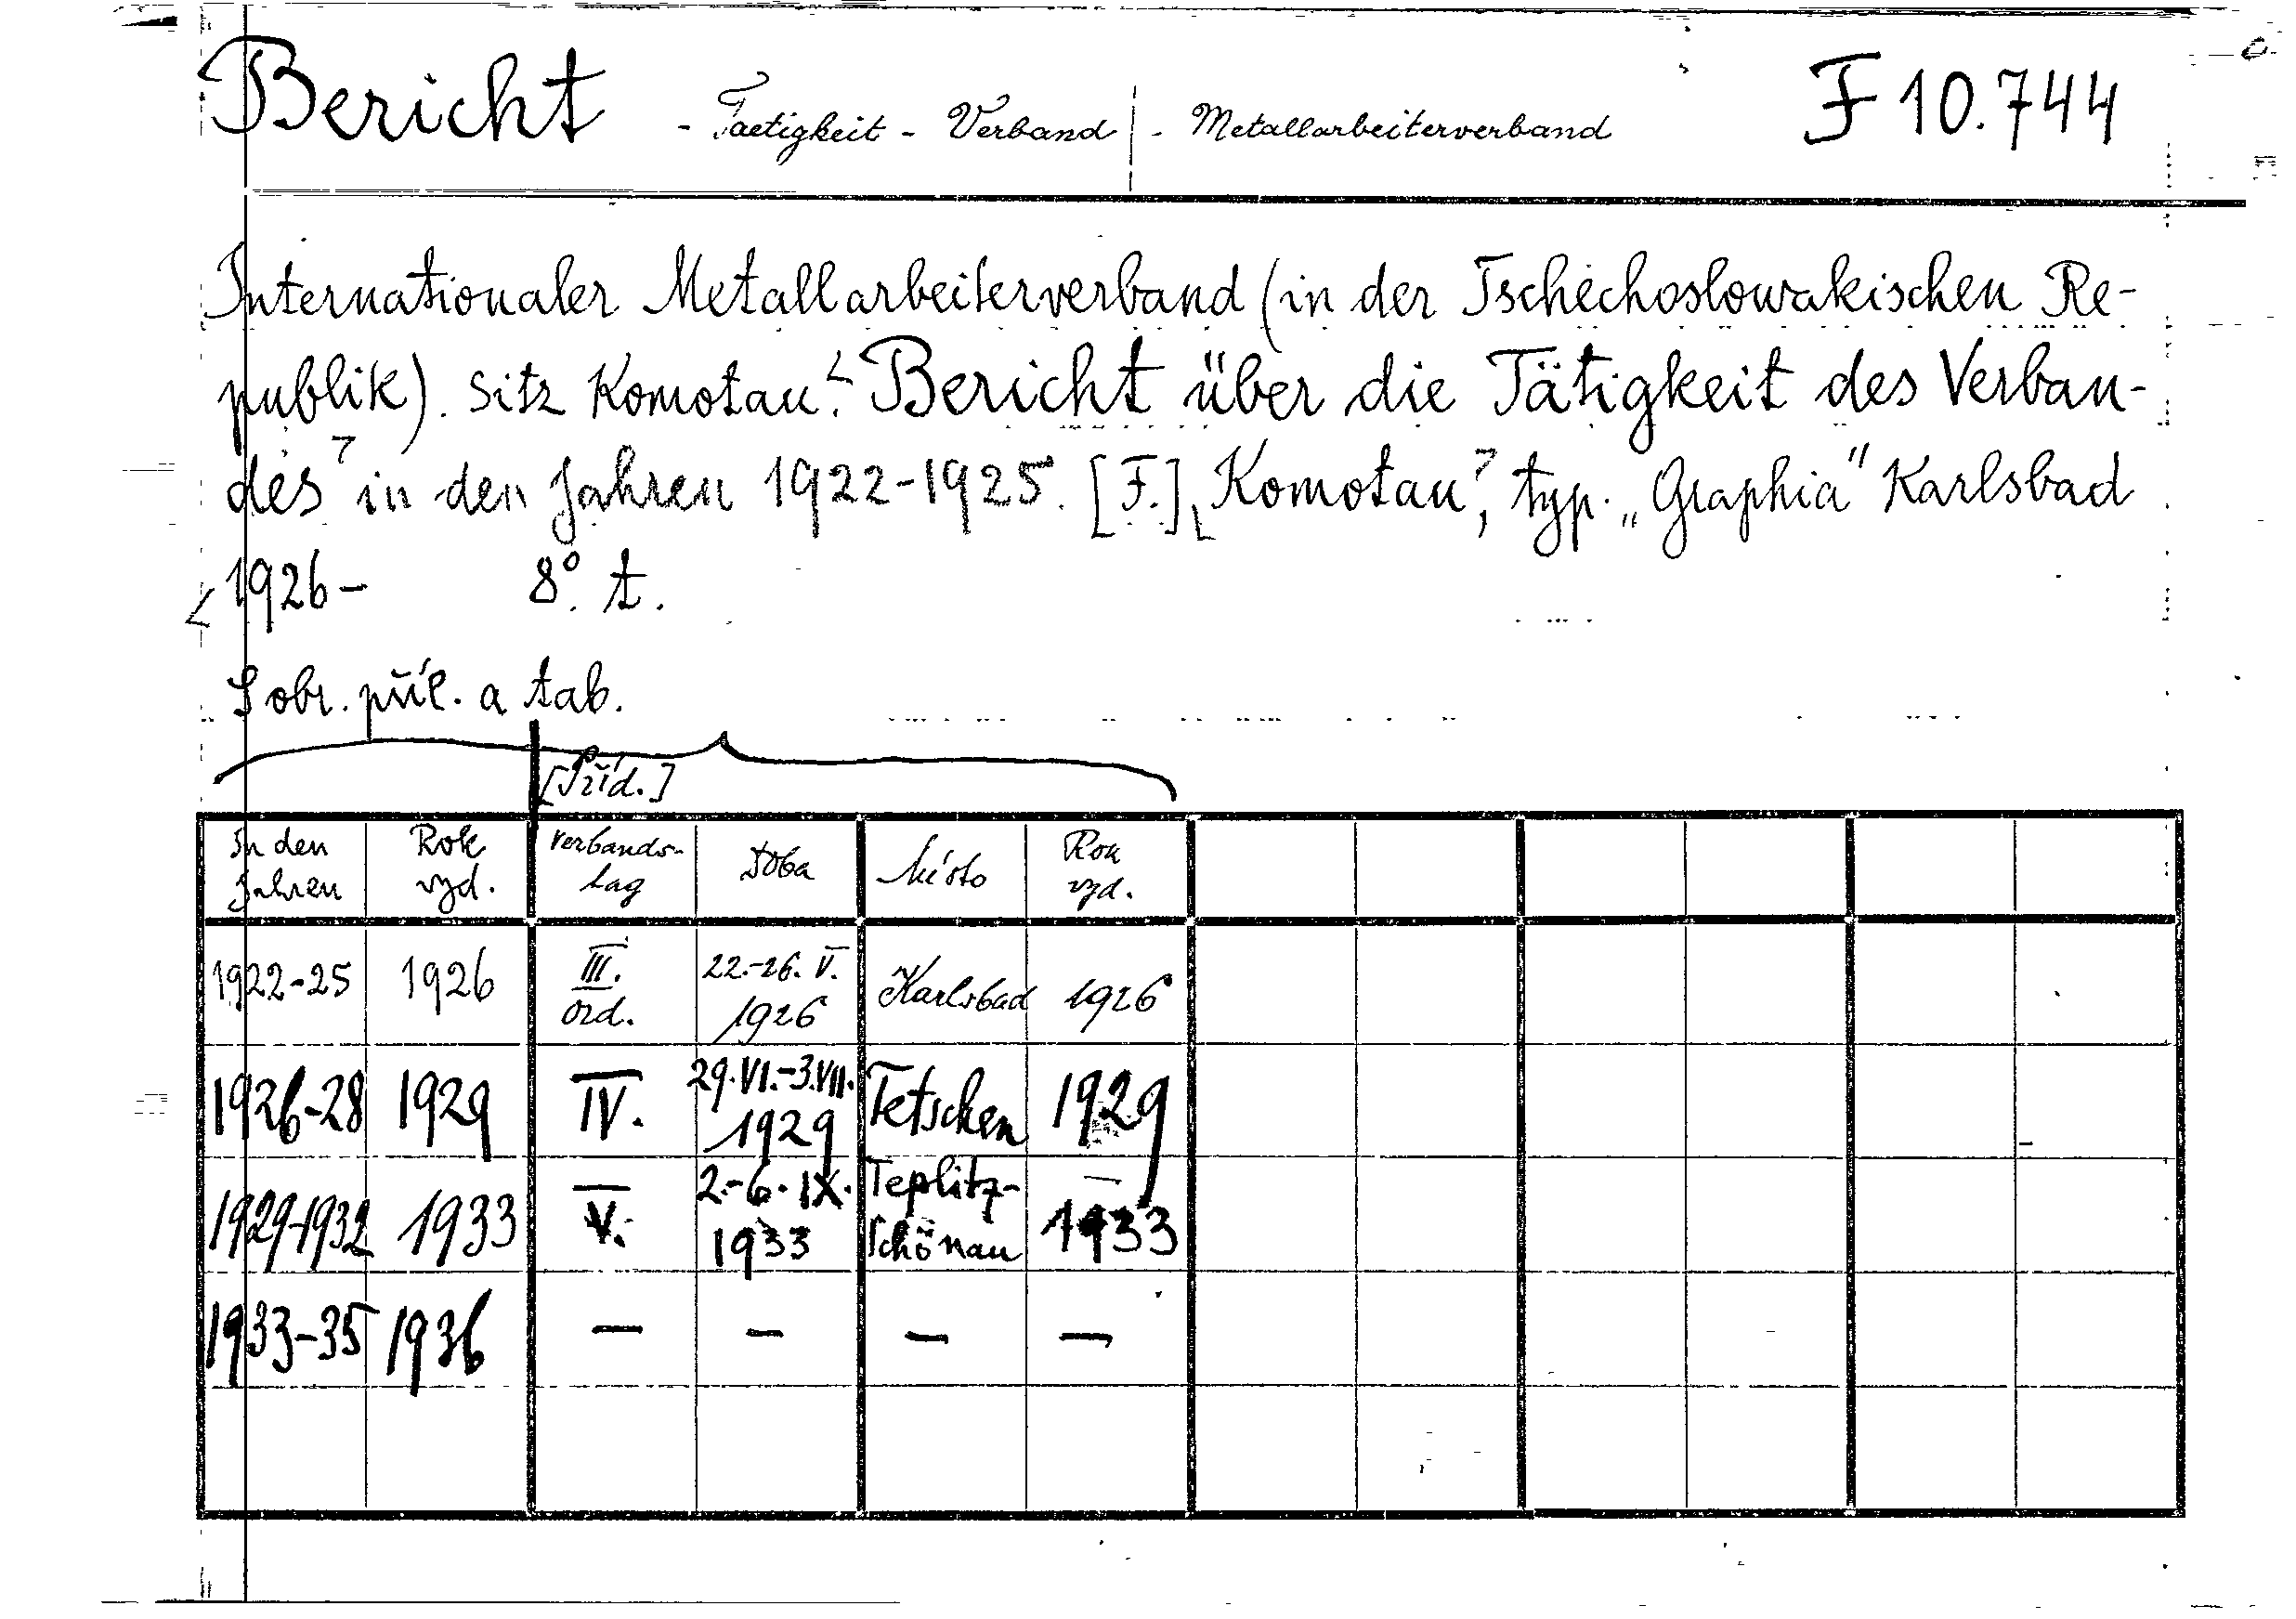 Bericht - Taetigkeit - Verband | - Metallarbeiterverband F 10.744
Internationaler Metallarbeiterverband (in der Tschechoslowakischen Re-
publik). Sitz Komotau. Bericht über die Tätigkeit des Verban-
des in den Jahren 1922-1925. [F.] Komotau, typ. „Graphia" Karlsbad
1926- 8° t.
S obr. příl. a tab.
[Příd.]
In den Jahren Rok vyd. Verbands-tag Doba Místo Rok vyd.
1922-25 1926 III. ord. 22.-26. V. 1926 Karlsbad 1926
1926-28 1929 IV. 29.VI.-3.VII. 1929 Tetschen 1929
1929-1932 1933 V. 2.-6. IX. 1933 Teplitz-Schönau 1933
1933-35 1936 — — — —